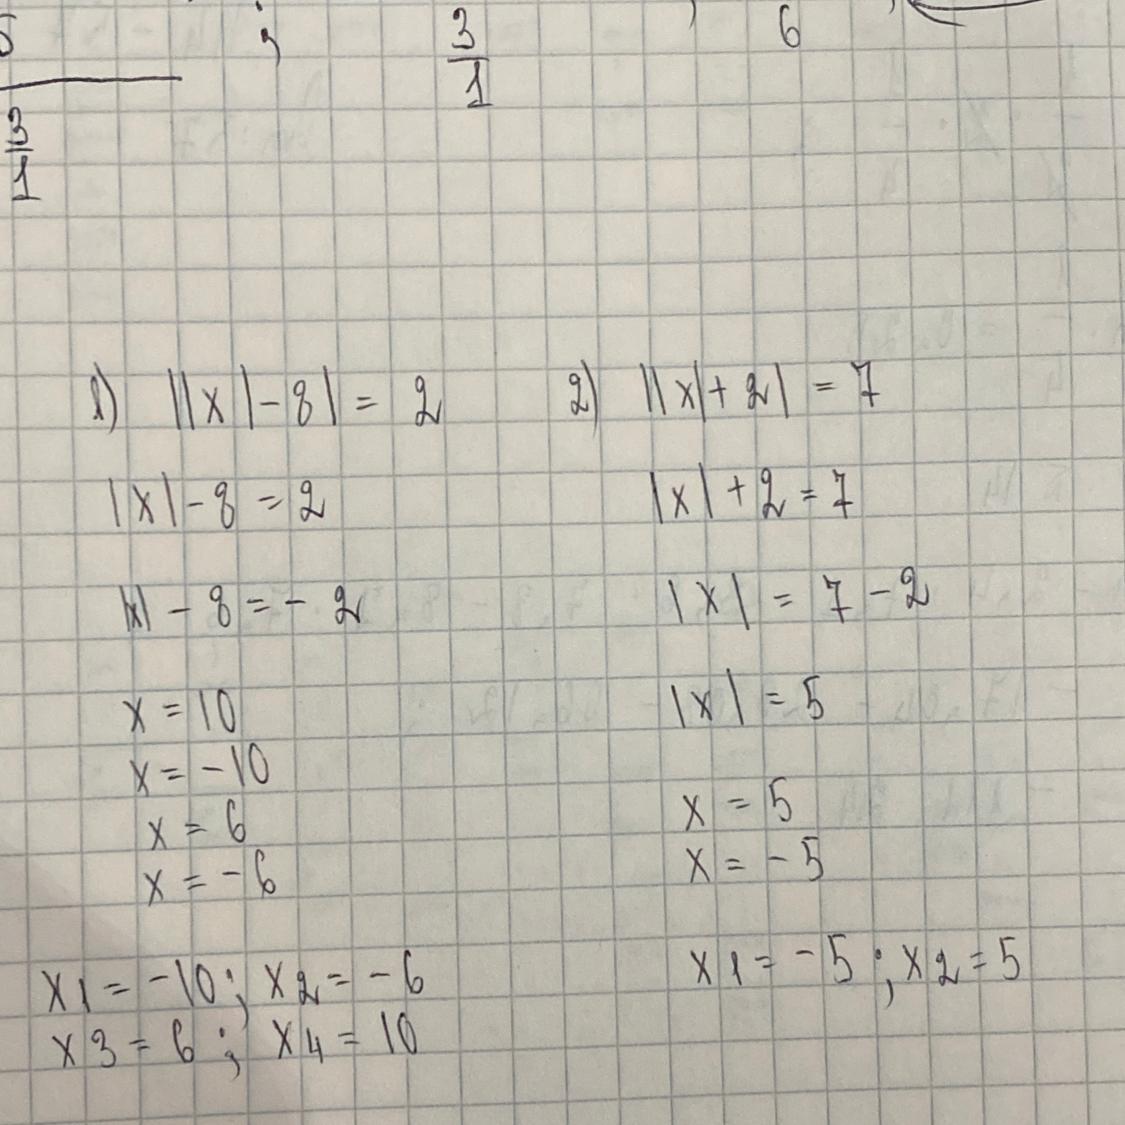 3
6
3
1
1
1) ||x|-8| = 2
|x|-8 = 2
|x| - 8 = - 2
x = 10
x = -10
x = 6
x = -6
x1 = -10; x2 = -6
x3 = 6; x4 = 10
2) ||x|+2| = 7
|x| + 2 = 7
|x| = 7 - 2
|x| = 5
x = 5
x = -5
x1 = -5; x2 = 5